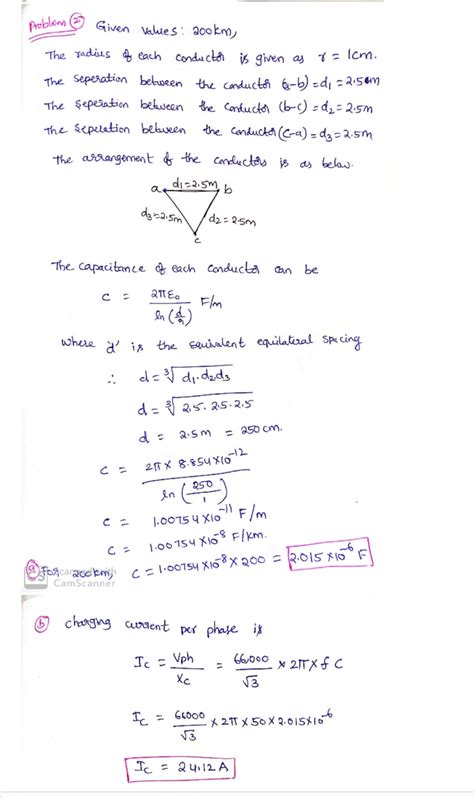 Problem ② Given values: 200km,
The radius of each conductor is given as r = 1cm.
The seperation between the conductor (a-b) = d₁ = 2.5m
The seperation between the conductor (b-c) = d₂ = 2.5m
The sepelation between the conductor (c-a) = d₃ = 2.5m
The arrangement of the conductors is as below.
a d₁=2.5m b
d₃=2.5m d₂=2.5m
c
The capacitance of each conductor can be
C = 2πε₀ / ln(d/r) F/m
where 'd' is the equivalent equilateral spacing
∴ d = ∛d₁.d₂d₃
d = ∛2.5.2.5.2.5
d = 2.5m = 250cm.
C = 2π × 8.854×10⁻¹² / ln(250/1)
C = 1.00754×10⁻¹¹ F/m
C = 1.00754×10⁻⁸ F/km.
ⓐ For 200km, C = 1.00754×10⁻⁸ × 200 = 2.015×10⁻⁶ F
CamScanner
ⓑ charging current per phase is
I_c = Vph / X_c = 66000 / √3 × 2π × f C
I_c = 66000 / √3 × 2π × 50 × 2.015×10⁻⁶
I_c = 24.12 A